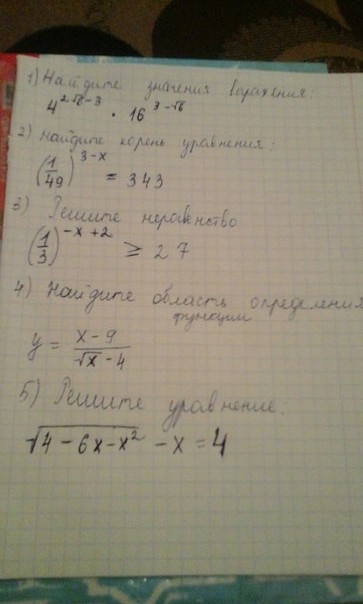 1) Найдите значения выражения:
4^{2√6-3} · 16^{3-√6}
2) Найдите корень уравнения:
(1/49)^{3-x} = 343
3) Решите неравенство
(1/3)^{-x+2} ≥ 27
4) Найдите область определения
функции
y = (x-9)/(√x-4)
5) Решите уравнение.
√(4-6x-x²) - x = 4